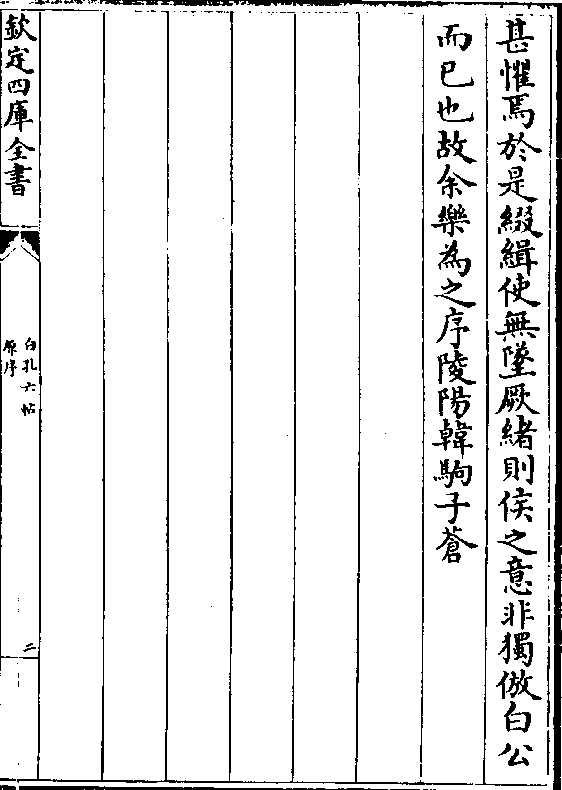 甚懼焉於是綴緝使無墜厥緒則侯之意非獨倣白公
而已也故余樂為之序陵陽韓駒子蒼
欽定四庫全書
白孔六帖
原序
二